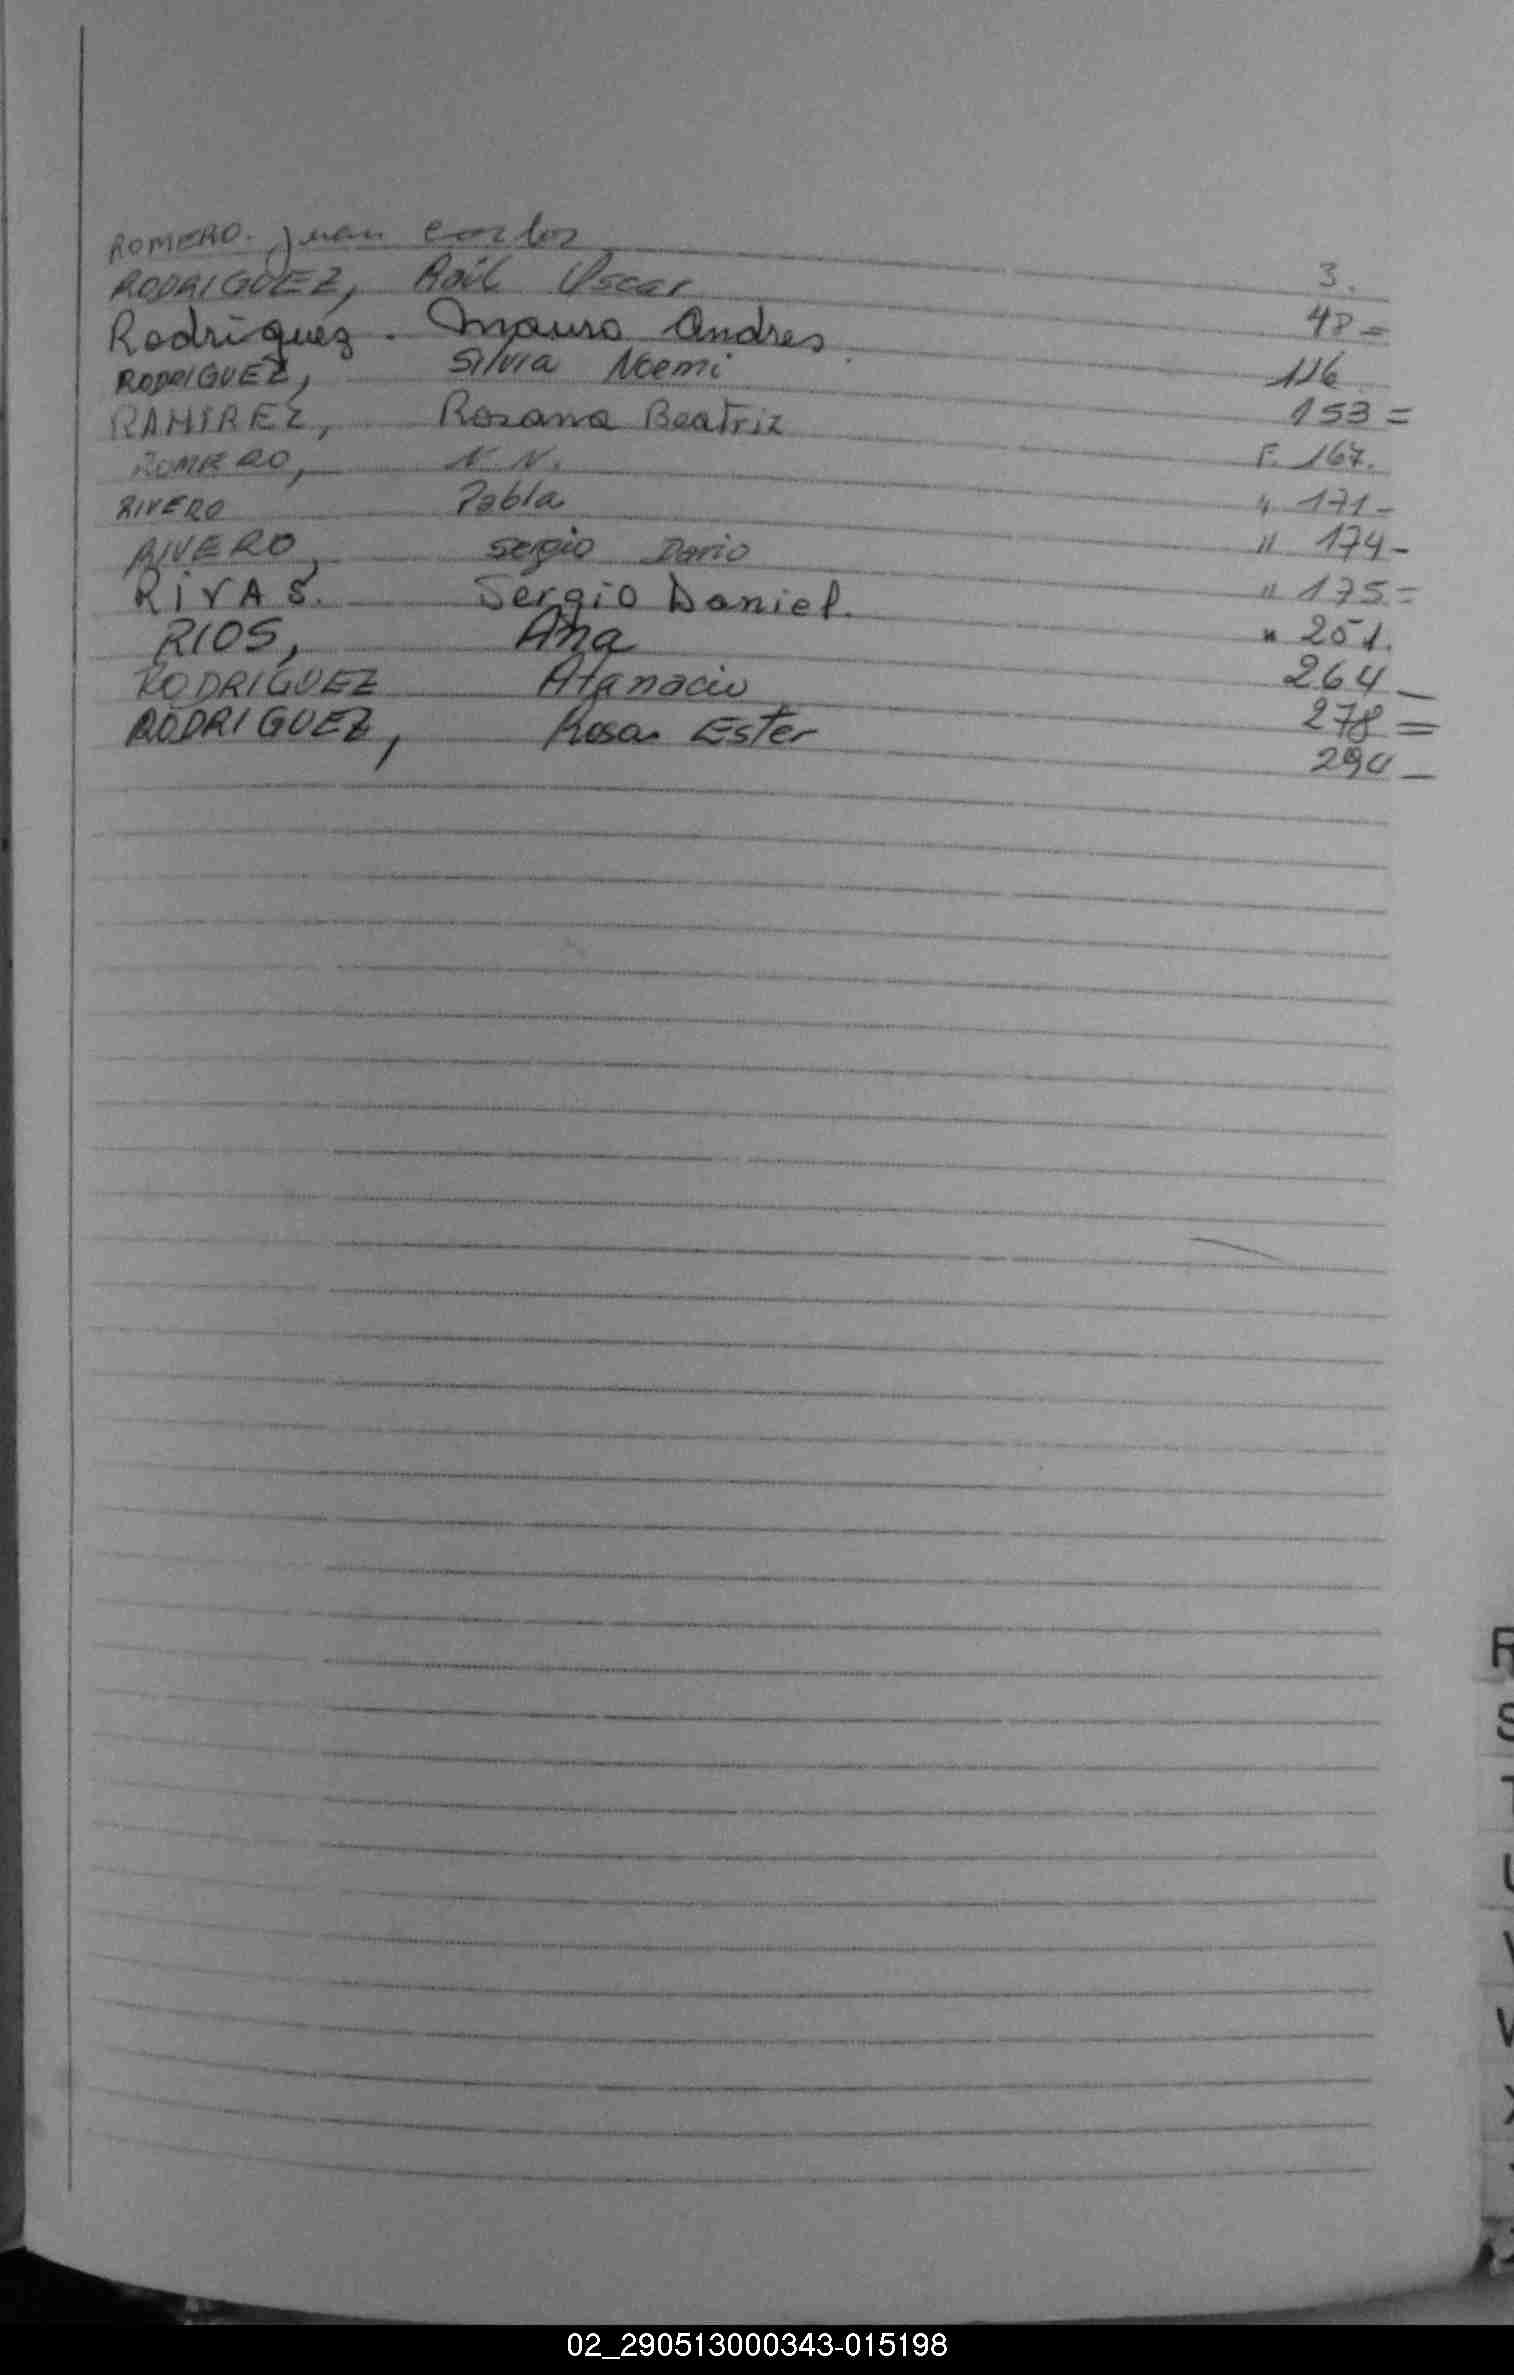 ROMERO. Juan Carlos 3.
RODRIGUEZ, Raúl Oscar 48=
Rodriguez. Mauro Andres. 116
RODRIGUEZ, Silvia Noemi 153=
RAMIREZ, Rosana Beatriz F. 167.
ROMERO, N.N. " 171-
RIVERO Pabla " 174-
RIVERO, Sergio Dario " 175=
RIVAS. Sergio Daniel. " 251.
RIOS, Ana 264-
RODRIGUEZ Atanacio 278=
RODRIGUEZ, Rosa Ester 294-
R
S
T
U
V
W
X
02_290513000343-015198